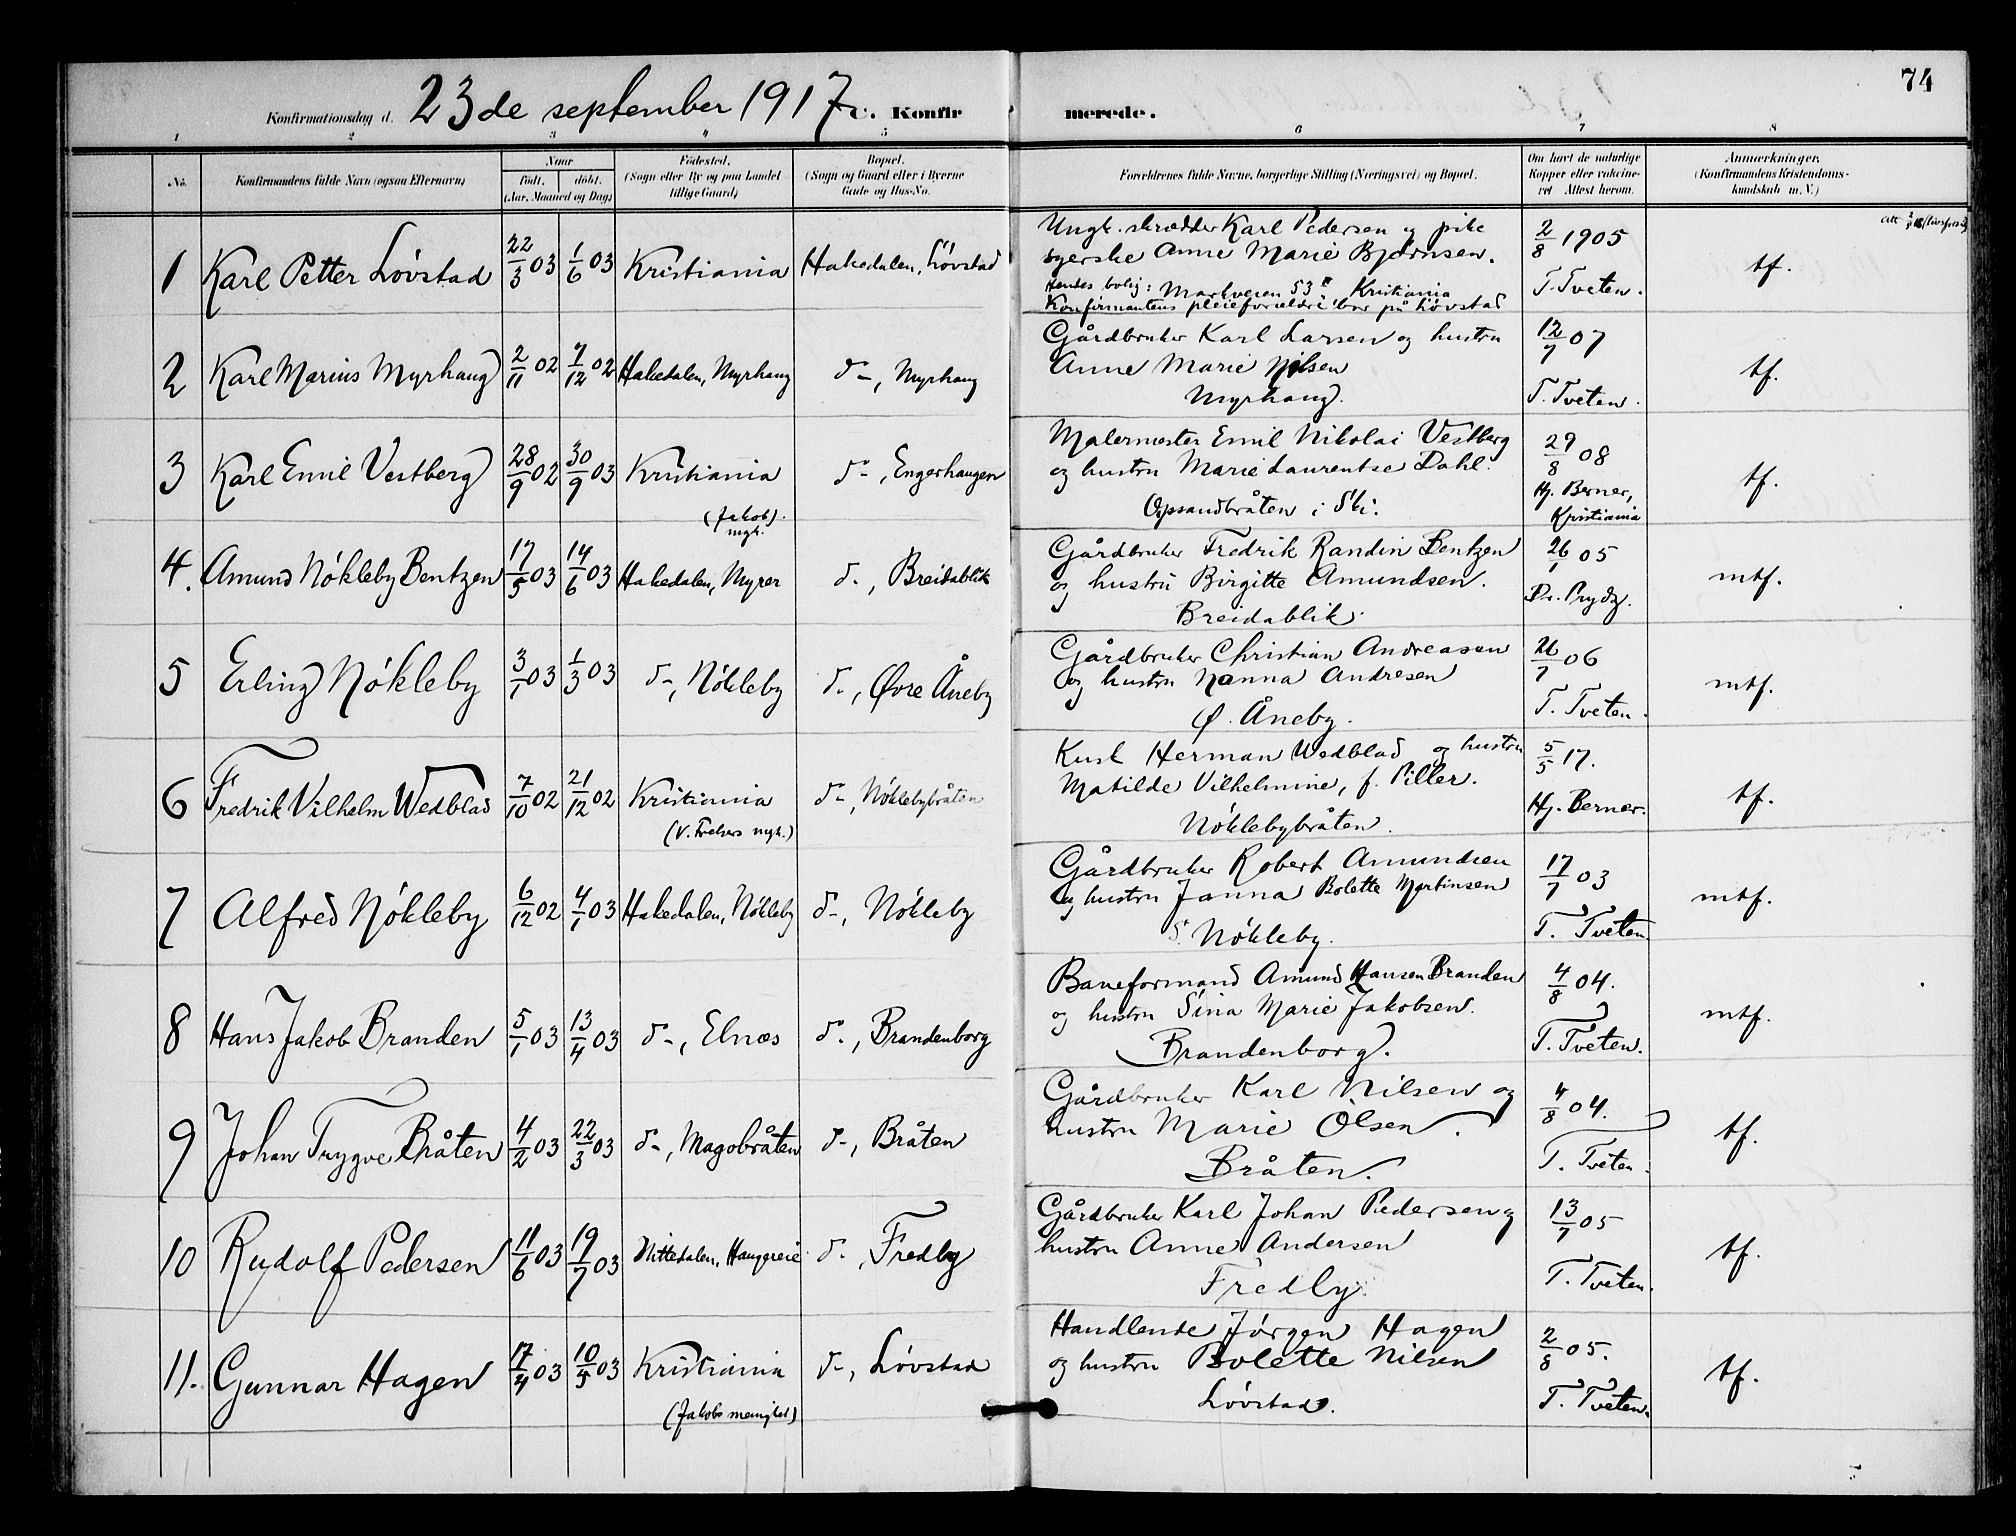 74
Konfirmationsdag d. 23de september 1917. C. Konfirmerede.
1 2 3 4 5 6 7 8
No. Konfirmandens fulde Navn (ogsaa Efternavn) Naar født. døbt. (Aar, Maaned og Dag) Fødested. (Sogn eller By og paa Landet tillige Gaard) Bopæl. (Sogn og Gaard eller i Byerne Gade og Hus-No. Forældrenes fulde Navne, borgerlige Stilling (Næringsvei) og Bopæl. Om havt de naturlige Kopper eller vakcineret Attest herom. Anmærkninger. (Konfirmandens Kristendomskundskab m. V.)
1 Karl Petter Lövstad 22/3 03 1/6 03 Kristiania Hakedalen, Lövstad
Ungk. skrædder Karl Pedersen og pike
syerske Anne Marie Bjørnsen.
Hendes bolig: Markveien 53 II Kristiania
Konfirmantens pleieforældre bor på Lövstad
2/8 1905
T. Tveten.
tf.
2 Karl Marius Myrhaug 2/11 02 7/12 02 Hakedalen, Myrhaug d-, Myrhaug
Gårdbruker Karl Larsen og hustru
Anne Marie Nilsen
Myrhaug.
12/7 07
T. Tveten.
tf.
3 Karl Emil Vestberg 28/9 02 30/9 03 Kristiania (Jakob). mgh. d-, Engerhaugen
Malermester Emil Nikolai Vestberg
og hustru Marie Laurentse Dahl.
Opsandbråten i Ski.
29/8 08
Hj. Berner,
Kristiania
tf.
4. Amund Nökleby Bentzen 17/5 03 14/6 03 Hakedalen, Myrer d-, Breidablik
Gårdbruker Fredrik Randin Bentzen
og hustru Birgitte Amundsen.
Breidablik.
26/1 05
Dr. Prydz.
mtf.
5 Erling Nökleby 3/1 03 1/3 03 d-, Nökleby d-, Øvre Åneby
Gårdbruker Christian Andreasen
og hustru Nanna Andresen
Ø. Åneby.
26/7 06
T. Tveten.
mtf.
6 Fredrik Vilhelm Wedblad 7/10 02 21/12 02 Kristiania (V. Frelsers mgh.) d-, Nöklebybråten
Kusk Herman Wedblad og hustru
Matilde Vilhelmine, f. Piller.
Nöklebybråten.
5/5 17.
Hj. Berner.
tf.
7 Alfred Nökleby 6/12 02 4/1 03 Hakedalen, Nökleby d-, Nökleby
Gårdbruker Robert Amundsen
og hustru Janna Bolette Martinsen
S. Nökleby.
17/7 03
T. Tveten.
mtf.
8 Hans Jakob Branden 5/1 03 13/4 03 d-, Elnæs d-, Brandenborg
Baneformand Amund Hansen Branden
og hustru Sina Marie Jakobsen.
Brandenborg.
4/8 04.
T. Tveten.
mtf.
9 Johan Trygve Bråten 4/2 03 22/3 03 d-, Magobråten d-, Bråten
Gårdbruker Karl Nilsen og
hustru Marie Olsen.
Bråten.
4/8 04.
T. Tveten.
tf.
10 Rudolf Pedersen 11/6 03 19/7 03 Nittedalen, Haugereie d-, Fredly
Gårdbruker Karl Johan Pedersen og
hustru Anne Andersen
Fredly.
13/7 05
T. Tveten.
tf.
11. Gunnar Hagen 17/4 03 10/5 03 Kristiania (Jakobs menighet) d-, Lövstad
Handlende Jörgen Hagen
og hustru Bolette Nilsen
Lövstad.
2/8 05.
T. Tveten.
tf.